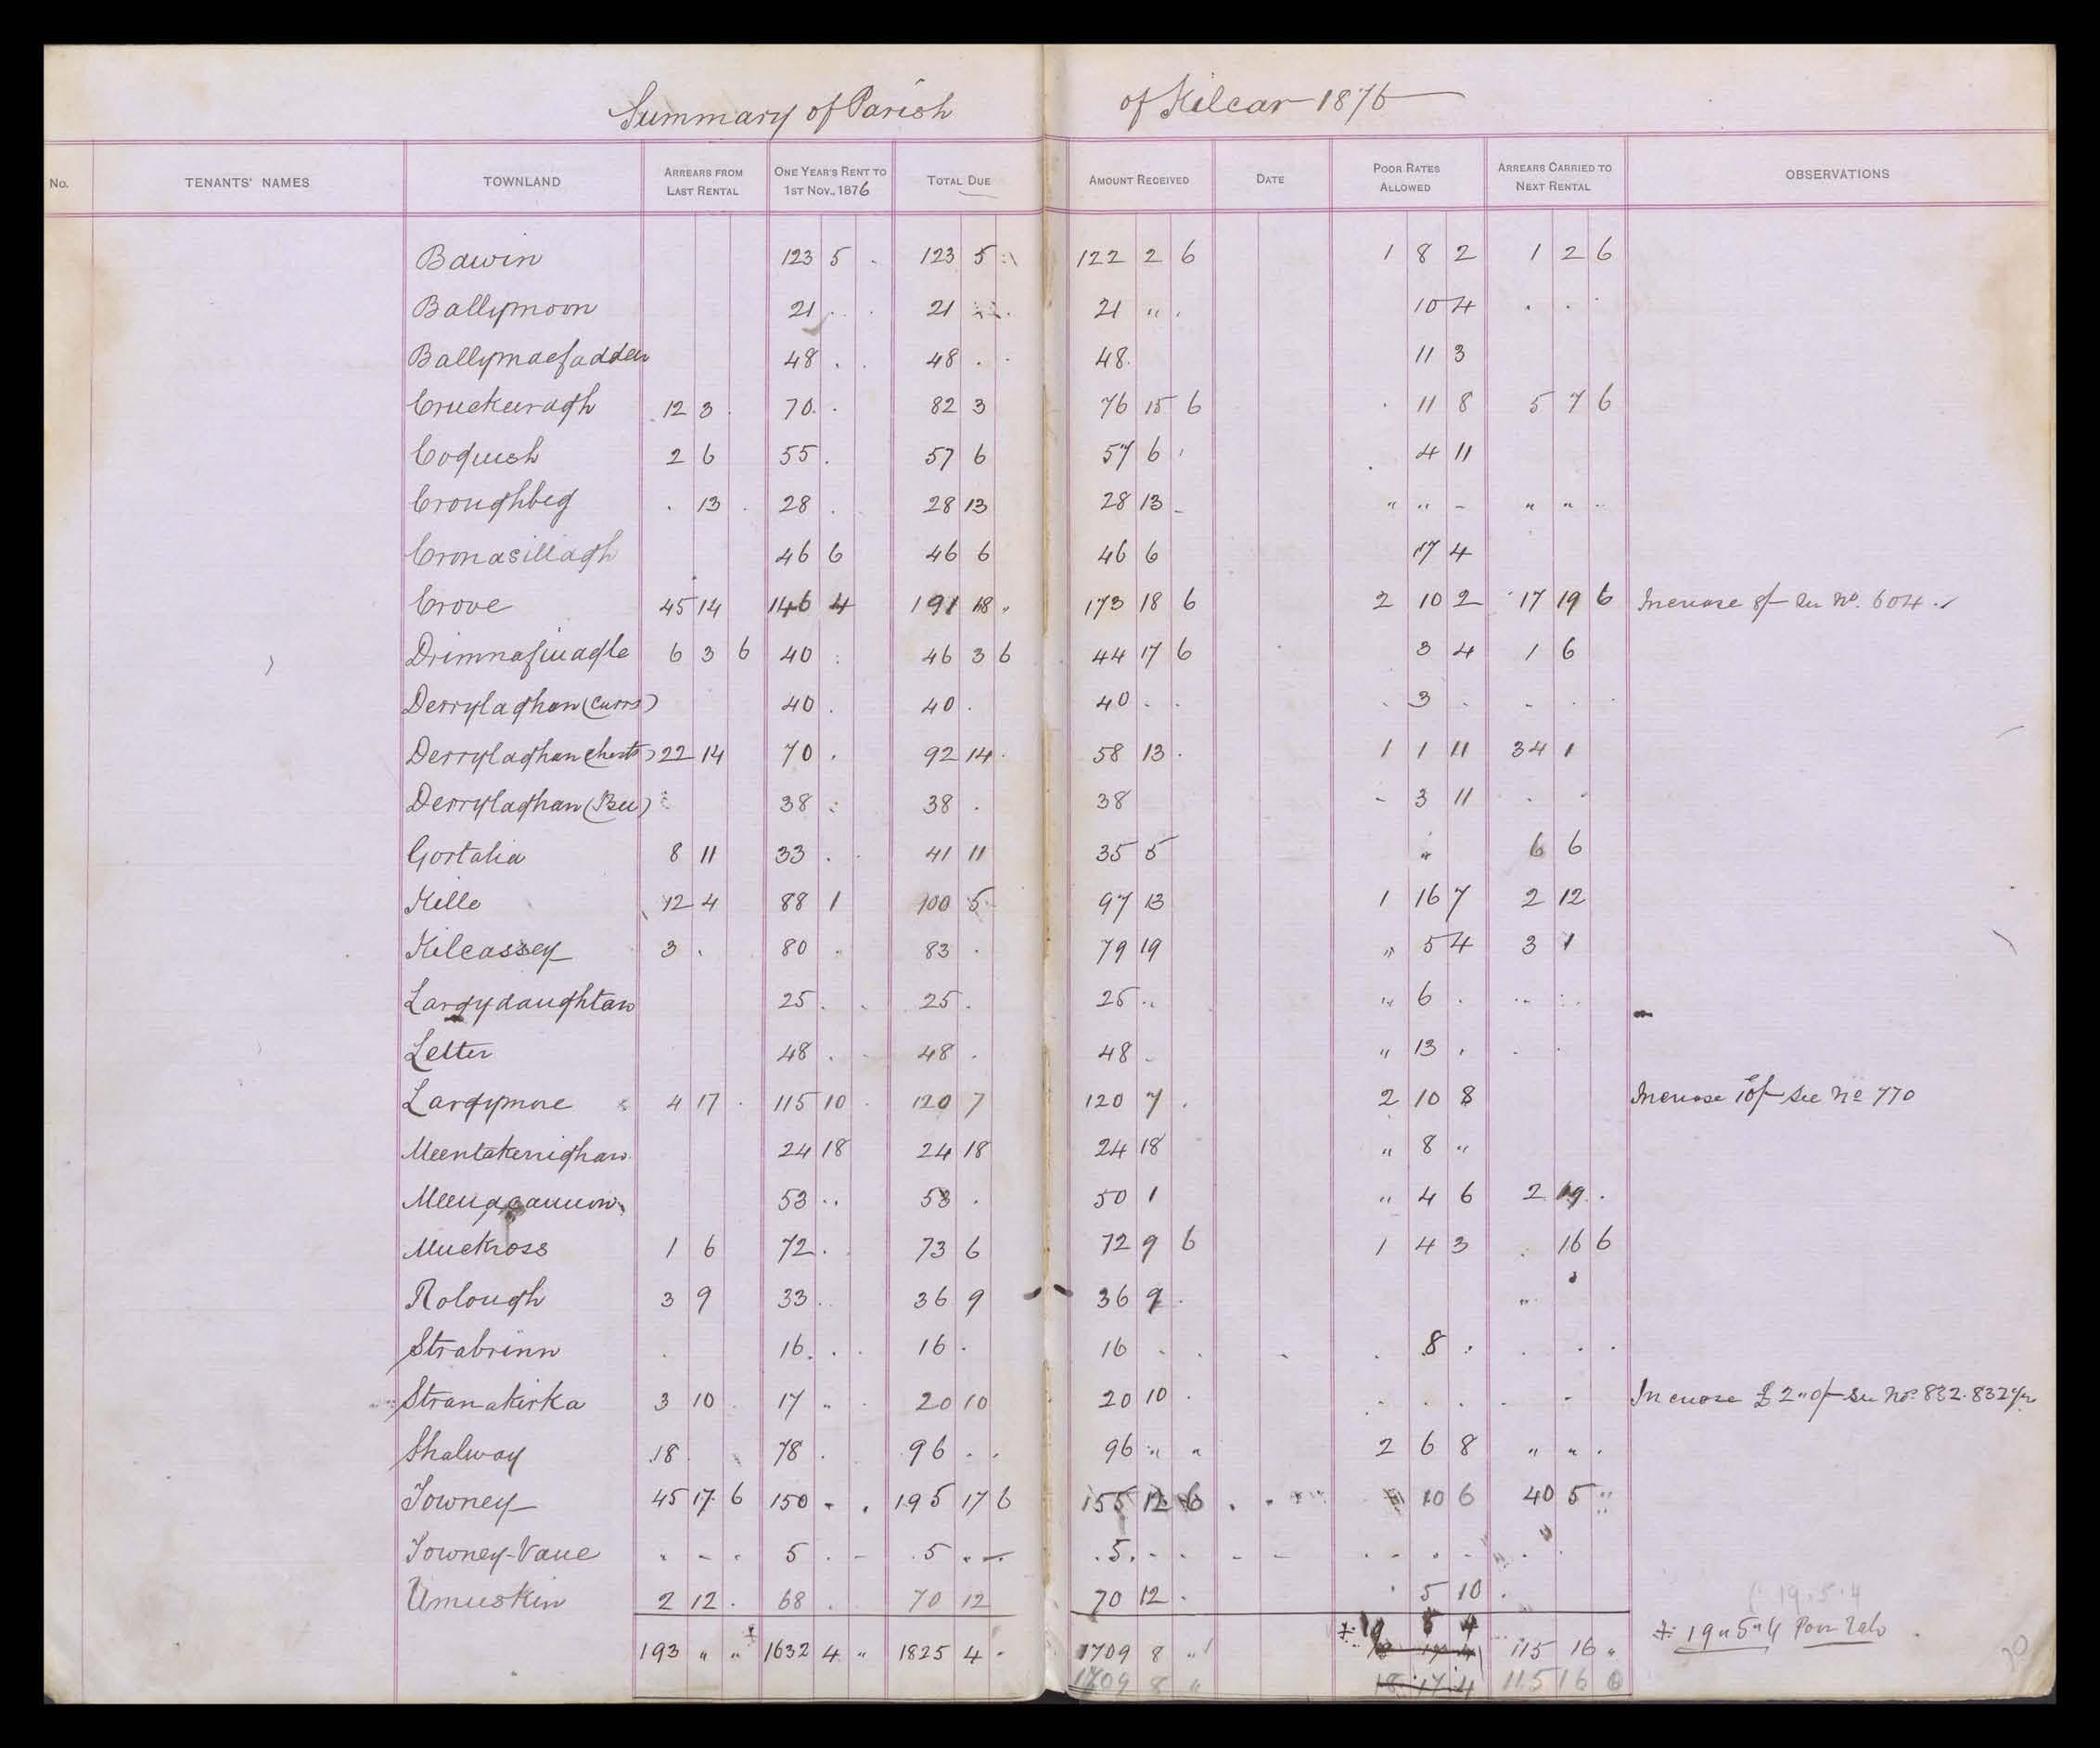 Summary of Parish of Kilcar 1876
No. TENANTS' NAMES TOWNLAND ARREARS FROM LAST RENTAL ONE YEAR'S RENT TO 1ST NOV., 1876 TOTAL DUE AMOUNT RECEIVED DATE POOR RATES ALLOWED ARREARS CARRIED TO NEXT RENTAL OBSERVATIONS
Bawin 123 5 . 123 5 122 2 6 1 8 2 1 2 6
Ballymoon 21 . . 21 21 " . 10 4 . . .
Ballymacfadden 48 . . 48 . . 48. 11 3
Cruckeeragh 12 3 . 70 . . 82 3 76 15 6 . 11 8 5 7 6
Coguish 2 6 55 . 57 6 57 6 . 4 11
Croughbeg . 13 . 28 . 28 13 28 13 - " " - " " -
Cronasillagh 46 6 46 6 46 6 17 4
Crove 45 14 146 4 191 18 " 173 18 6 2 10 2 17 19 6 Increase 8/- See No. 604
Drimnafinagle 6 3 6 40 : 46 3 6 44 17 6 3 4 1 6
Derrylaghan (Curris) 40 . 40 . 40 . . . 3 . . . .
Derrylaghan 22 14 70 . 92 14 . 58 13 . 1 1 11 34 1
Derrylaghan (Bee) 38 : 38 . 38 - 3 11 . .
Gortalia 8 11 33 . . 41 11 35 5 " 6 6
Kille 12 4 88 1 100 5 97 13 1 16 7 2 12
Kilcassey 3 . 80 . 83 . 79 19 " 5 4 3 1
Largydaughtan 25 . . 25 . 25 .. " 6 . .. : .
Letter 48 . . 48 . 48 - " 13 . . .
Largymore 4 17 . 115 10 . 120 7 120 7 . 2 10 8 Increase 10/- See No 770
Meentakenighan 24 18 24 18 24 18 " 8 "
Meenacannon 53 .. 53 . 50 1 " 4 6 2 19 .
Muckross 1 6 72 . . 73 6 72 9 6 1 4 3 . 16 6
Rolough 3 9 33 .. 36 9 36 9 . "
Strabrinn . 16 . . . 16 . 16 . . . 8 . . . .
Stranakirka 3 10 . 17 " . 20 10 20 10 . . . . . - Increase £2"0/- See Nos 832.832½
Shalway 18 78 . 96 . . 96 " " 2 6 8 " " .
Towney 45 17 6 150 - . 195 17 6 155 12 6 10 6 40 5 "
Towney-Vane . - . 5 . - 5 . - 5 . - .
Umuskin 2 12 . 68 . 70 12 70 12 . . 5 10 .
19.5.4
193 " " 1632 4 " 1825 4 - 1709 8 " 19 5 4 115 16 " 19"5"4 Poor Rate
1709 8 " 18 17 4 115 16 0